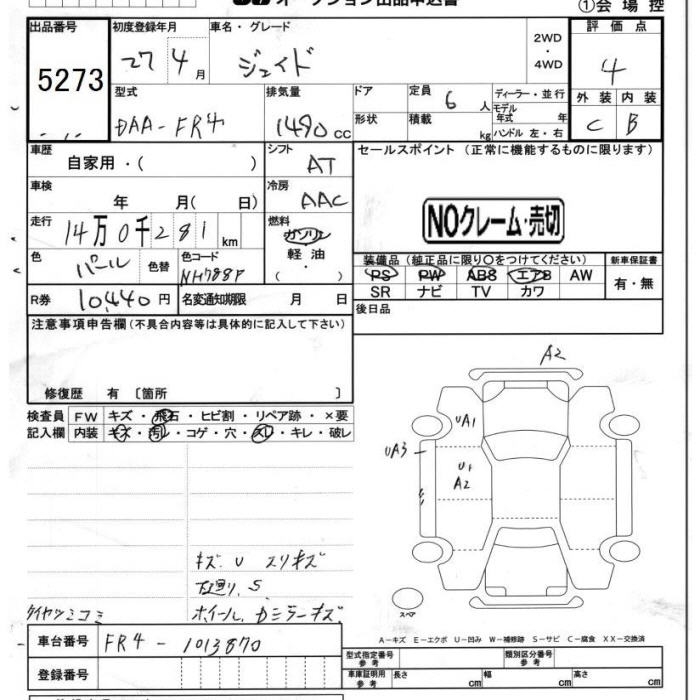 オークション出品申込書
①会場控
出品番号 初度登録年月 車名・グレード 評価点
5273 27 4月 ジェイド 2WD・4WD 4
型式 排気量 ドア 定員 6人 ディーラー・並行 外装 内装
DAA-FR4 1490cc 形状 積載 kg モデル年式 年 C B
ハンドル 左・右
車歴 自家用・( ) シフト AT セールスポイント (正常に機能するものに限ります)
車検 年 月( 日) 冷房 AAC
NOクレーム・売切
走行 14万0千281km 燃料 ガソリン
軽油・( )
色 パール 色替 色コード NH788P
装備品 (純正品に限り○をつけてください) 新車保証書
PS PW ABS エアB AW 有・無
SR ナビ TV カワ
R券 10,440円 名変通知期限 月 日 後日品
注意事項申告欄 (不具合内容等は具体的に記入して下さい)
修復歴 有 〔箇所 〕
A2
検査員 FW キズ・飛石・ヒビ割・リペア跡・×要
記入欄 内装 キズ・汚レ・コゲ・穴・スレ・キレ・破レ
UA1
UA3
A2
キズ U スリキズ
S
タイヤツミコミ ホイール、
スペア
A―キズ E―エクボ U―凹み W―補修跡 S―サビ C―腐食 XX―交換済
車台番号 FR4-1013870
登録番号
型式指定番号 参考 類別区分番号 参考
車庫証明用 参考 長さ cm 幅 cm 高さ cm